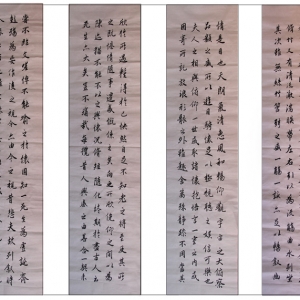 修竹又有清流激湍映帶左右引以為流觴曲水列坐
其次雖無絲竹管弦之盛一觴一詠亦足以暢敘幽
情是日也天朗氣清惠風和暢仰觀宇宙之大俯察
品類之盛所以遊目騁懷足以極視聽之娛信可樂也
夫人之相與俯仰一世或取諸懷抱悟言一室之內或
因寄所託放浪形骸之外雖趣舍萬殊靜躁不同當其
欣於所遇暫得於己快然自足不知老之將至及其所
之既倦情隨事遷感慨係之矣向之所欣俯仰之間以為
陳迹猶不能不以之興懷況修短隨化終期於盡古人云
死生亦大矣豈不痛哉每攬昔人興感之由若合一契未
嘗不臨文嗟悼不能喻之於懷固知一死生為虛誕齊
彭殤為妄作後之視今亦由今之視昔悲夫故列敘時